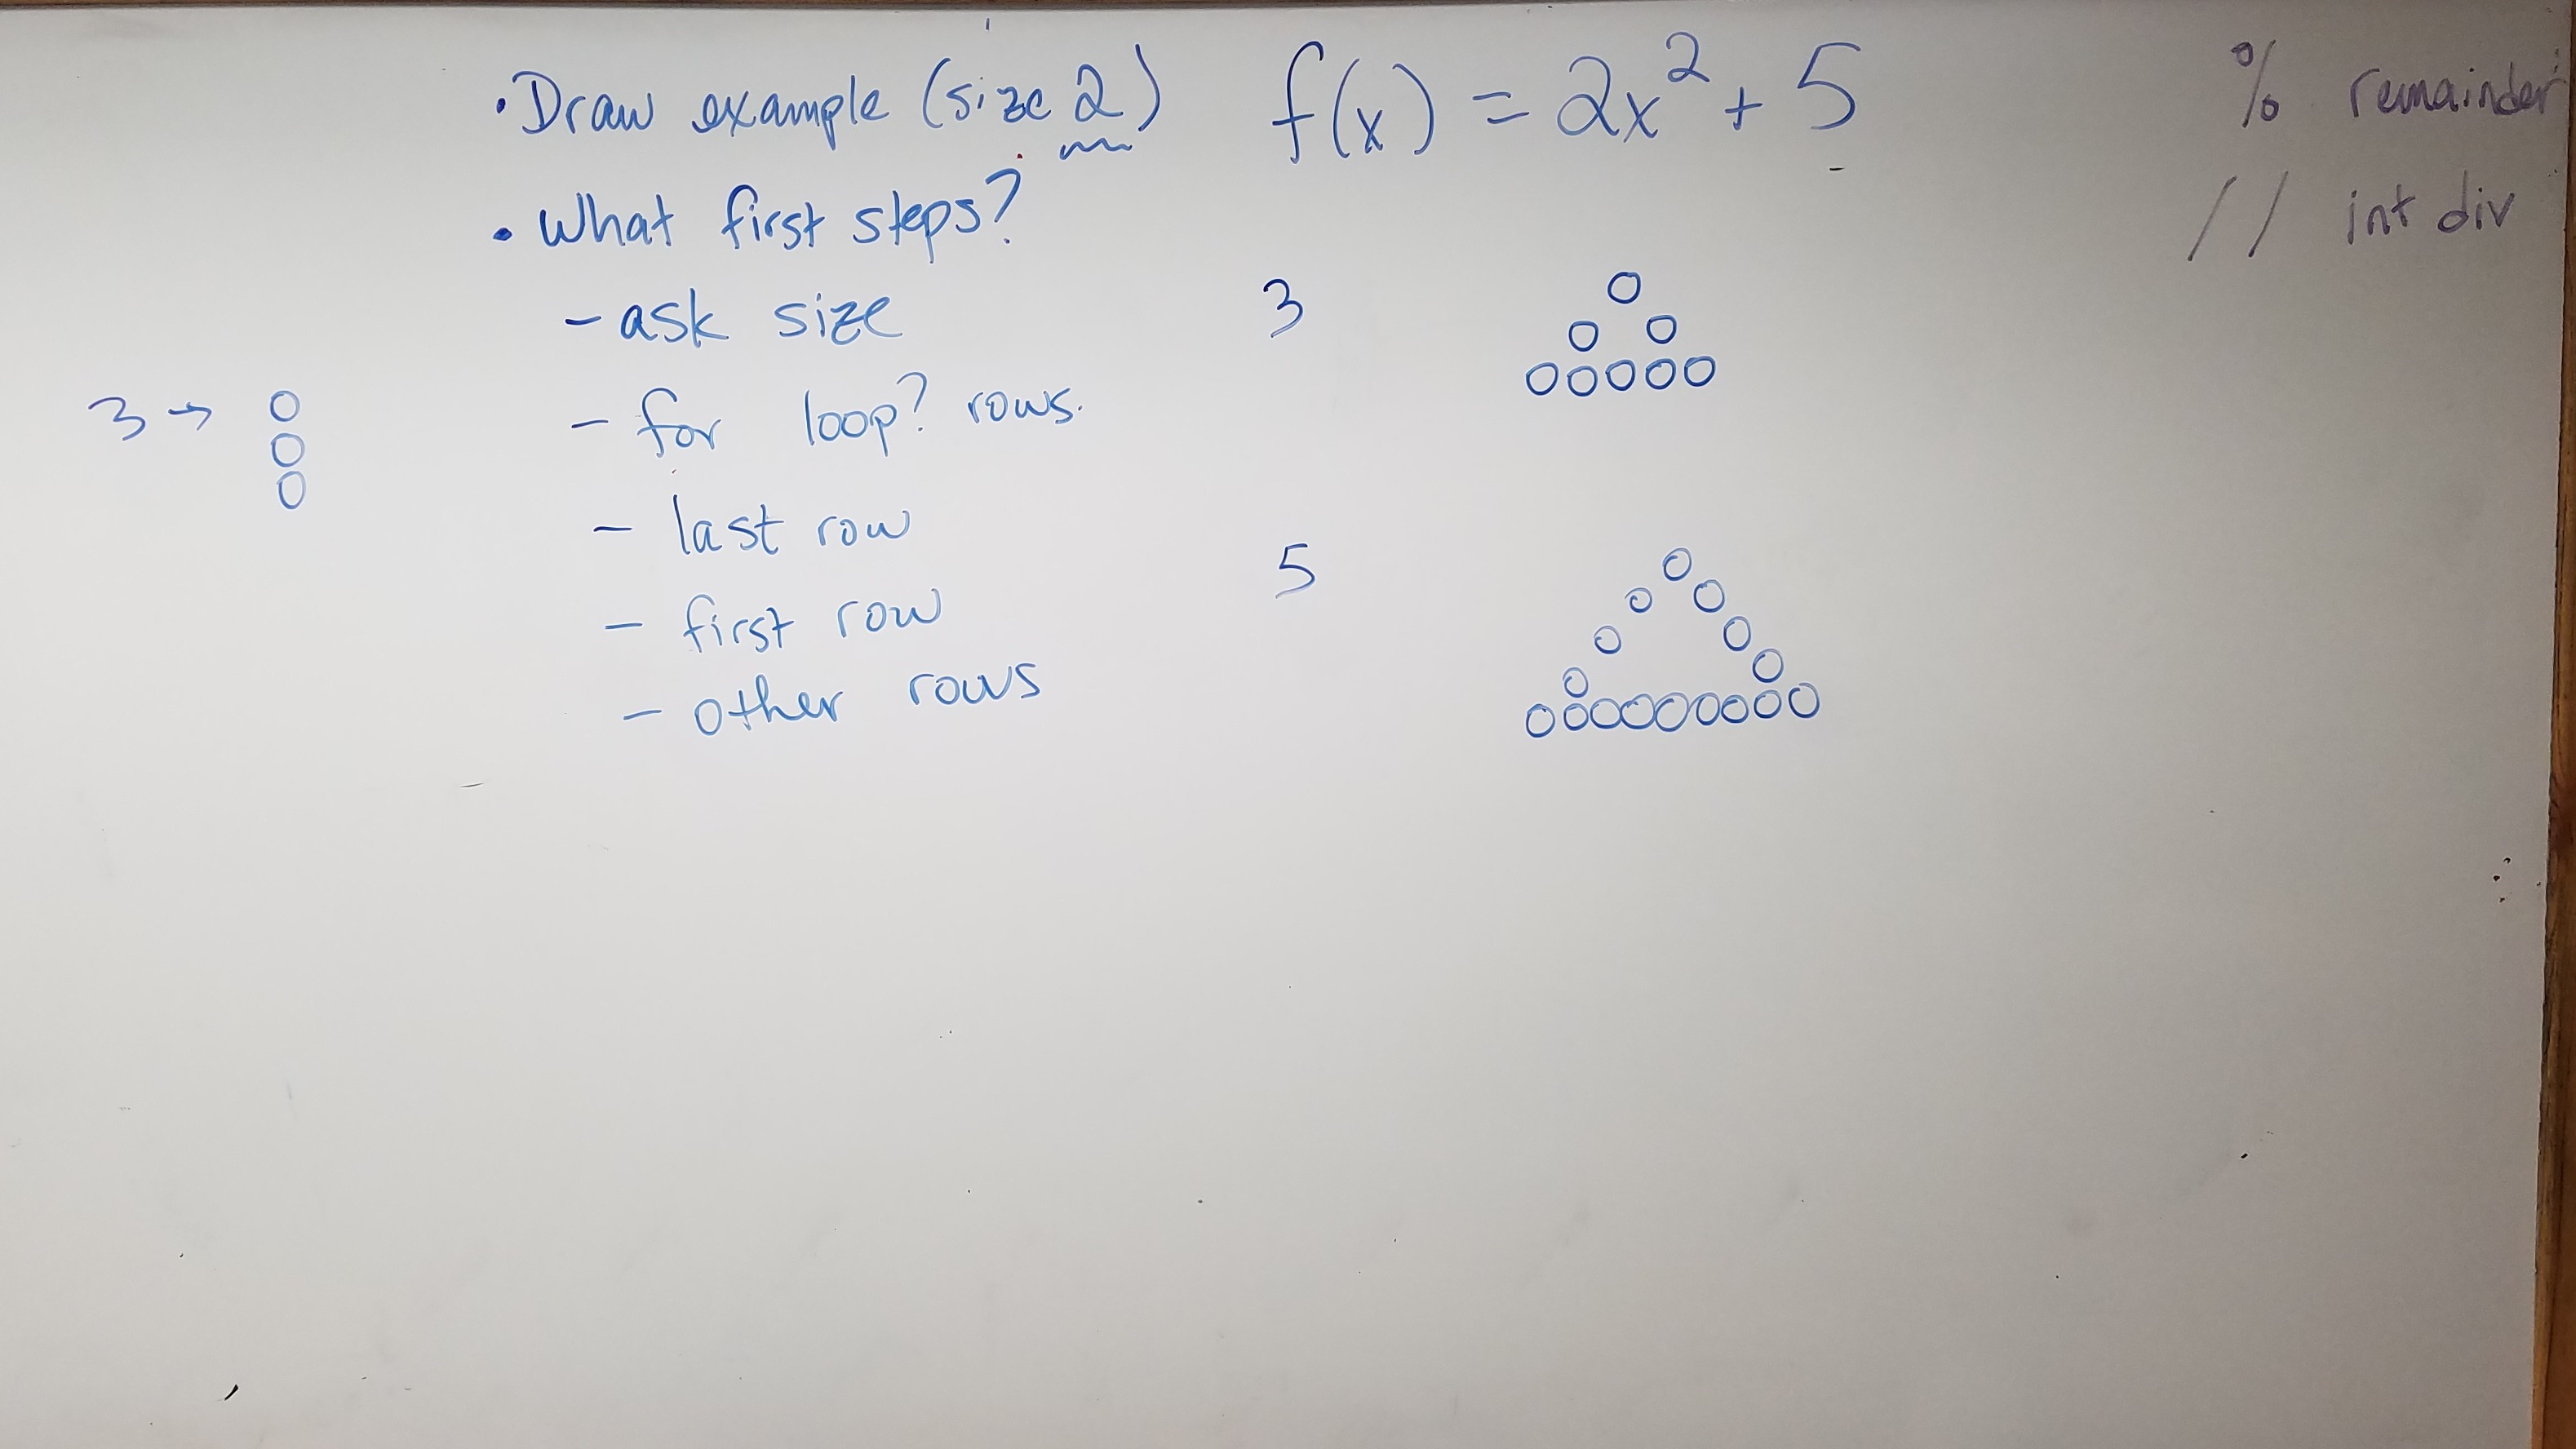 • Draw example (size 2)
• What first steps?
- ask size
- for loop? rows.
- last row
- first row
- other rows
3 →
f(x) = 2x² + 5
3
5
% remainder
// int div